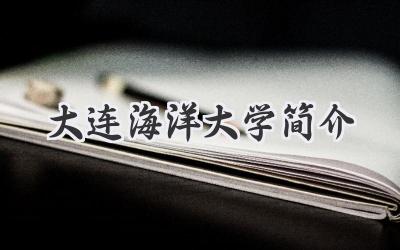 大连海洋大学简介